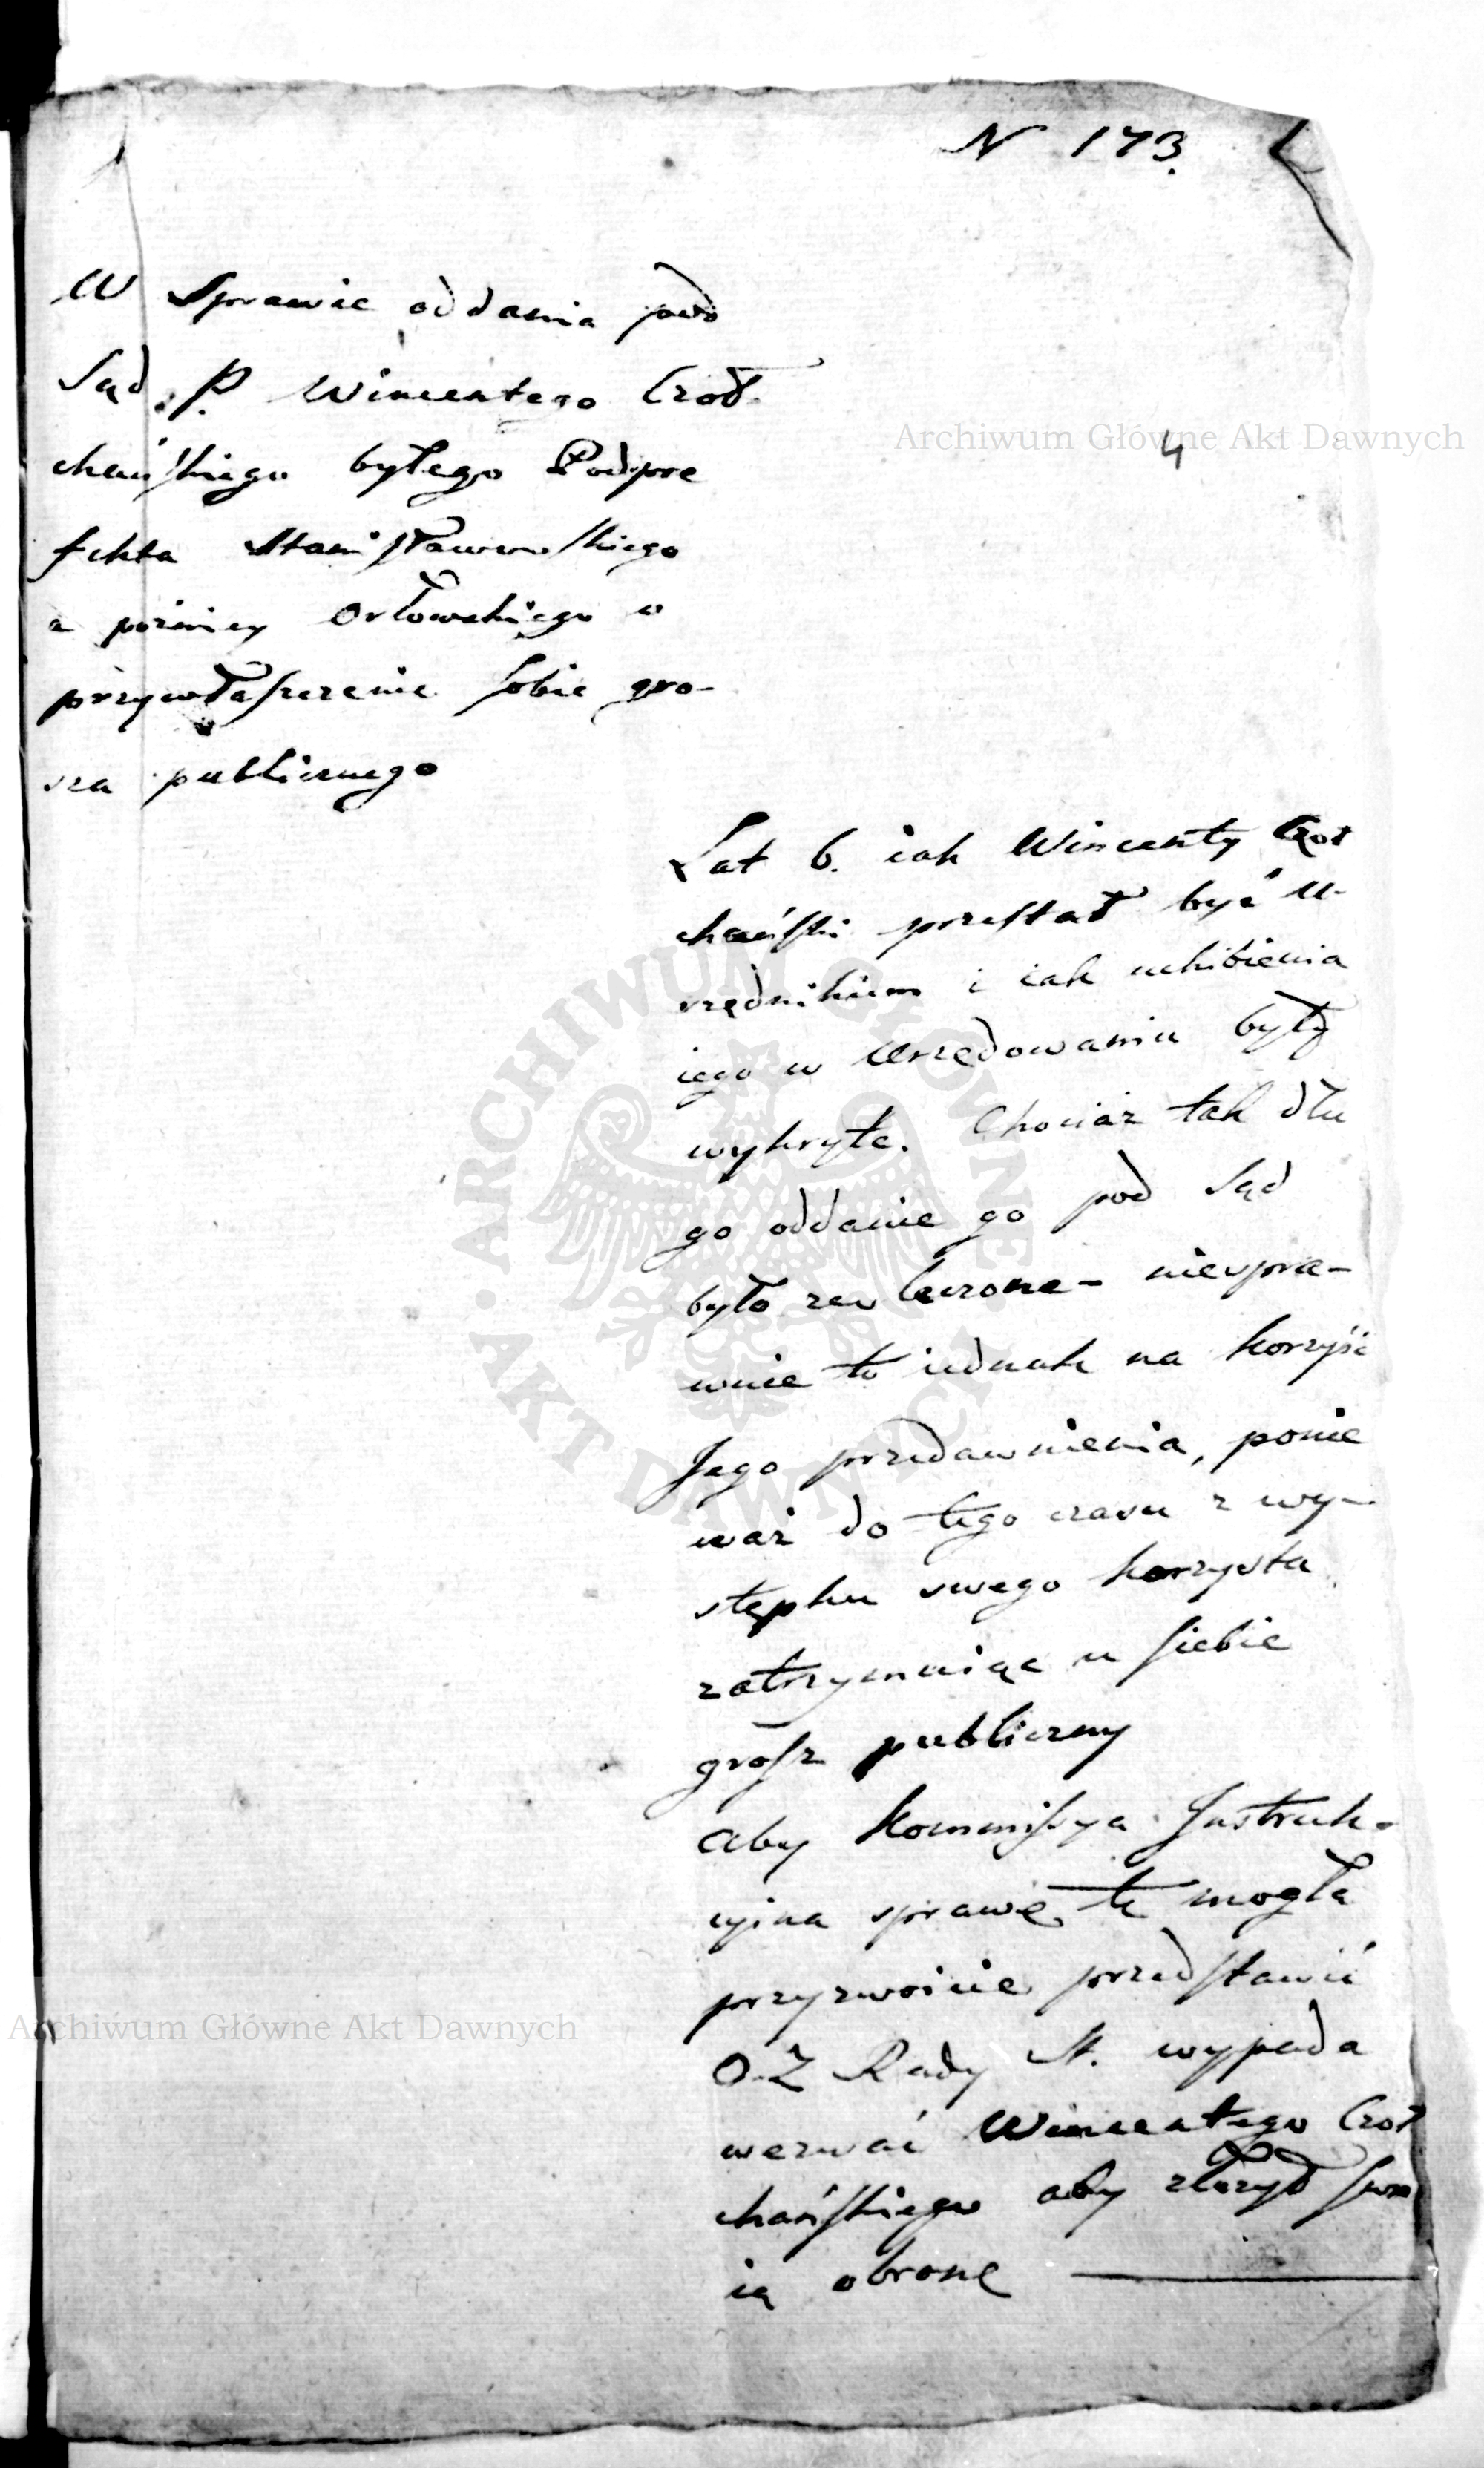 N 173.
4
W Sprawie oddania pod
Sąd P. Wincentego Czoł-
chańskiego byłego Podpre
fekta Stanisławowskiego
a pożniey Orłowskiego o
przywłaszczenie sobie gro-
sza publicznego
Lat 6. iak Wincenty Czoł
chański przestał być u-
rzędnikiem i iak uchibienia
iego w Urzędowaniu były
wykryte. Chociaż tak dłu
go oddanie go pod Sąd
było zewleczone - niespra-
wnie to iednak na korzyść
Jego przedawnienia, ponie
waż do tego czasu z wy-
stępku swego korzysta
zatrzymuiąc u siebie
grosz publiczny
Aby Kommissya Instruk-
cyina sprawę tę mogła
przyzwoicie przedstawić
O. Z Rady St. wypada
wezwać Wincentego Czoł
chańskiego aby złożył swo
ią obronę
Archiwum Główne Akt Dawnych
Archiwum Główne Akt Dawnych
ARCHIWUM GŁÓWNE • AKT DAWNYCH •